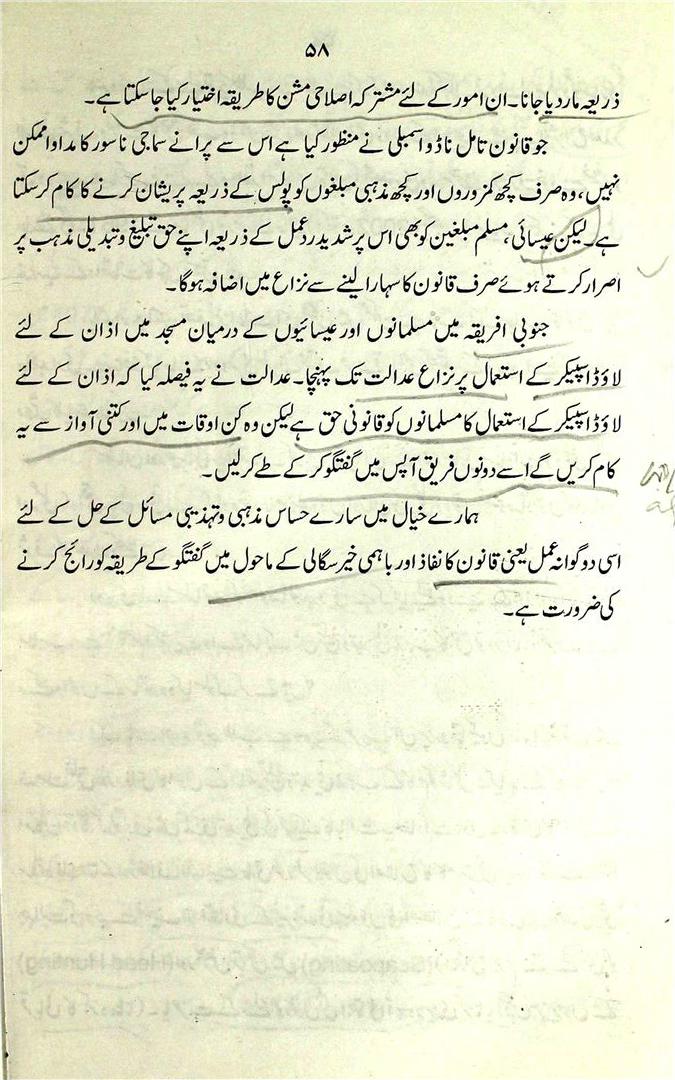 ۵۸
ذریعہ مار دیا جانا۔ ان امور کے لئے مشترکہ اصلاحی مشن کا طریقہ اختیار کیا جا سکتا ہے۔
جو قانون تامل ناڈو اسمبلی نے منظور کیا ہے اس سے پرانے سماجی ناسور کا مداوا ممکن
نہیں، وہ صرف کچھ کمزوروں اور کچھ مذہبی مبلغوں کو پولس کے ذریعہ پریشان کرنے کا کام کر سکتا
ہے۔ لیکن عیسائی، مسلم مبلغین کو بھی اس پر شدید ردعمل کے ذریعہ اپنے حق تبلیغ و تبدیلی مذہب پر
اصرار کرتے ہوئے صرف قانون کا سہارا لینے سے نزاع میں اضافہ ہوگا۔
جنوبی افریقہ میں مسلمانوں اور عیسائیوں کے درمیان مسجد میں اذان کے لئے
لاؤڈ اسپیکر کے استعمال پر نزاع عدالت تک پہنچا۔ عدالت نے یہ فیصلہ کیا کہ اذان کے لئے
لاؤڈ اسپیکر کے استعمال کا مسلمانوں کو قانونی حق ہے لیکن وہ کن اوقات میں اور کتنی آواز سے یہ
کام کریں گے اسے دونوں فریق آپس میں گفتگو کر کے طے کر لیں۔
ہمارے خیال میں سارے حساس مذہبی و تہذیبی مسائل کے حل کے لئے
اسی دوگوانہ عمل یعنی قانون کا نفاذ اور باہمی خیر سگالی کے ماحول میں گفتگو کے طریقہ کو رائج کرنے
کی ضرورت ہے۔